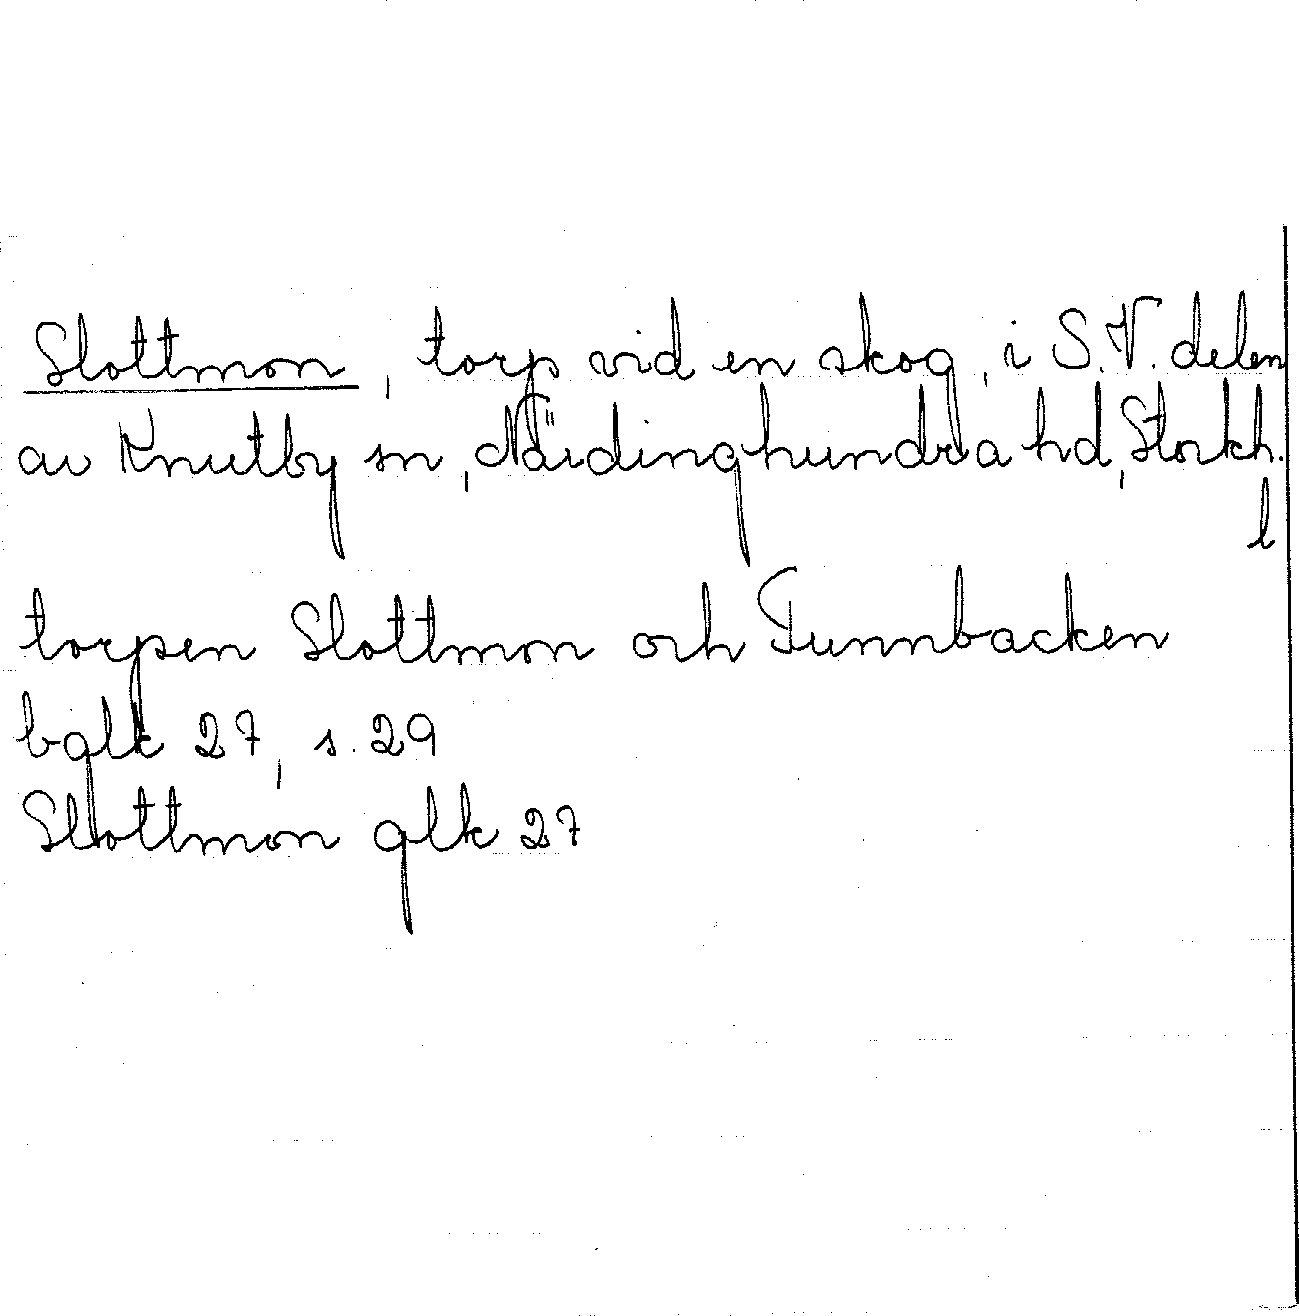 Slottmon, torp vid en skog, i S.V. delen
av Knutby sn, Närdinghundra hd, Stockh.
l
torpen Slottmon och Tunnbacken
bglk 27, s. 29
Slottmon glk 27